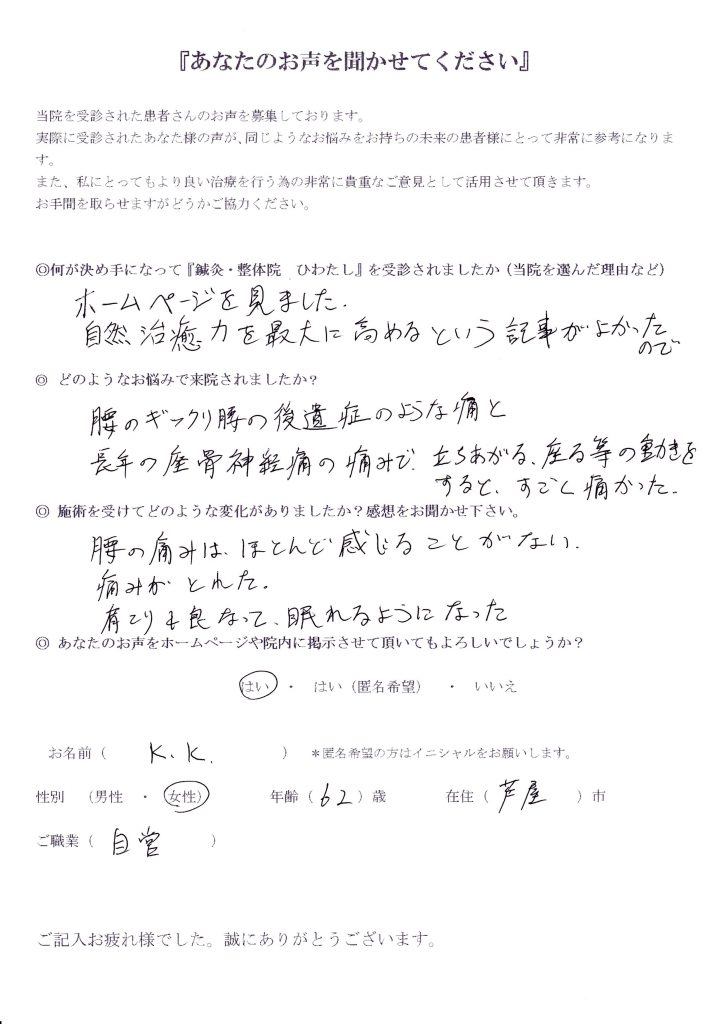 『あなたのお声を聞かせてください』
当院を受診された患者さんのお声を募集しております。
実際に受診されたあなた様の声が、同じようなお悩みをお持ちの未来の患者様にとって非常に参考になりま
す。
また、私にとってもより良い治療を行う為の非常に貴重なご意見として活用させて頂きます。
お手間を取らせますがどうかご協力ください。
◎何が決め手になって『鍼灸・整体院　ひわたし』を受診されましたか（当院を選んだ理由など）
ホームページを見ました.
自然治癒力を最大に高めるという記事がよかった
ので
◎ どのようなお悩みで来院されましたか？
腰のギックリ腰の後遺症のような痛と
長年の座骨神経痛の痛みで、立ちあがる、座る等の動きを
すると、すごく痛かった.
◎ 施術を受けてどのような変化がありましたか？感想をお聞かせ下さい。
腰の痛みは、ほとんど感じることがない.
痛みがとれた.
肩こりも良なって、眠れるようになった
◎ あなたのお声をホームページや院内に掲示させて頂いてもよろしいでしょうか？
はい ・ はい（匿名希望） ・ いいえ
お名前（ K.K. ） ＊匿名希望の方はイニシャルをお願いします。
性別 （男性 ・ 女性） 年齢（ 62 ）歳 在住（ 芦屋 ）市
ご職業（ 自営 ）
ご記入お疲れ様でした。誠にありがとうございます。